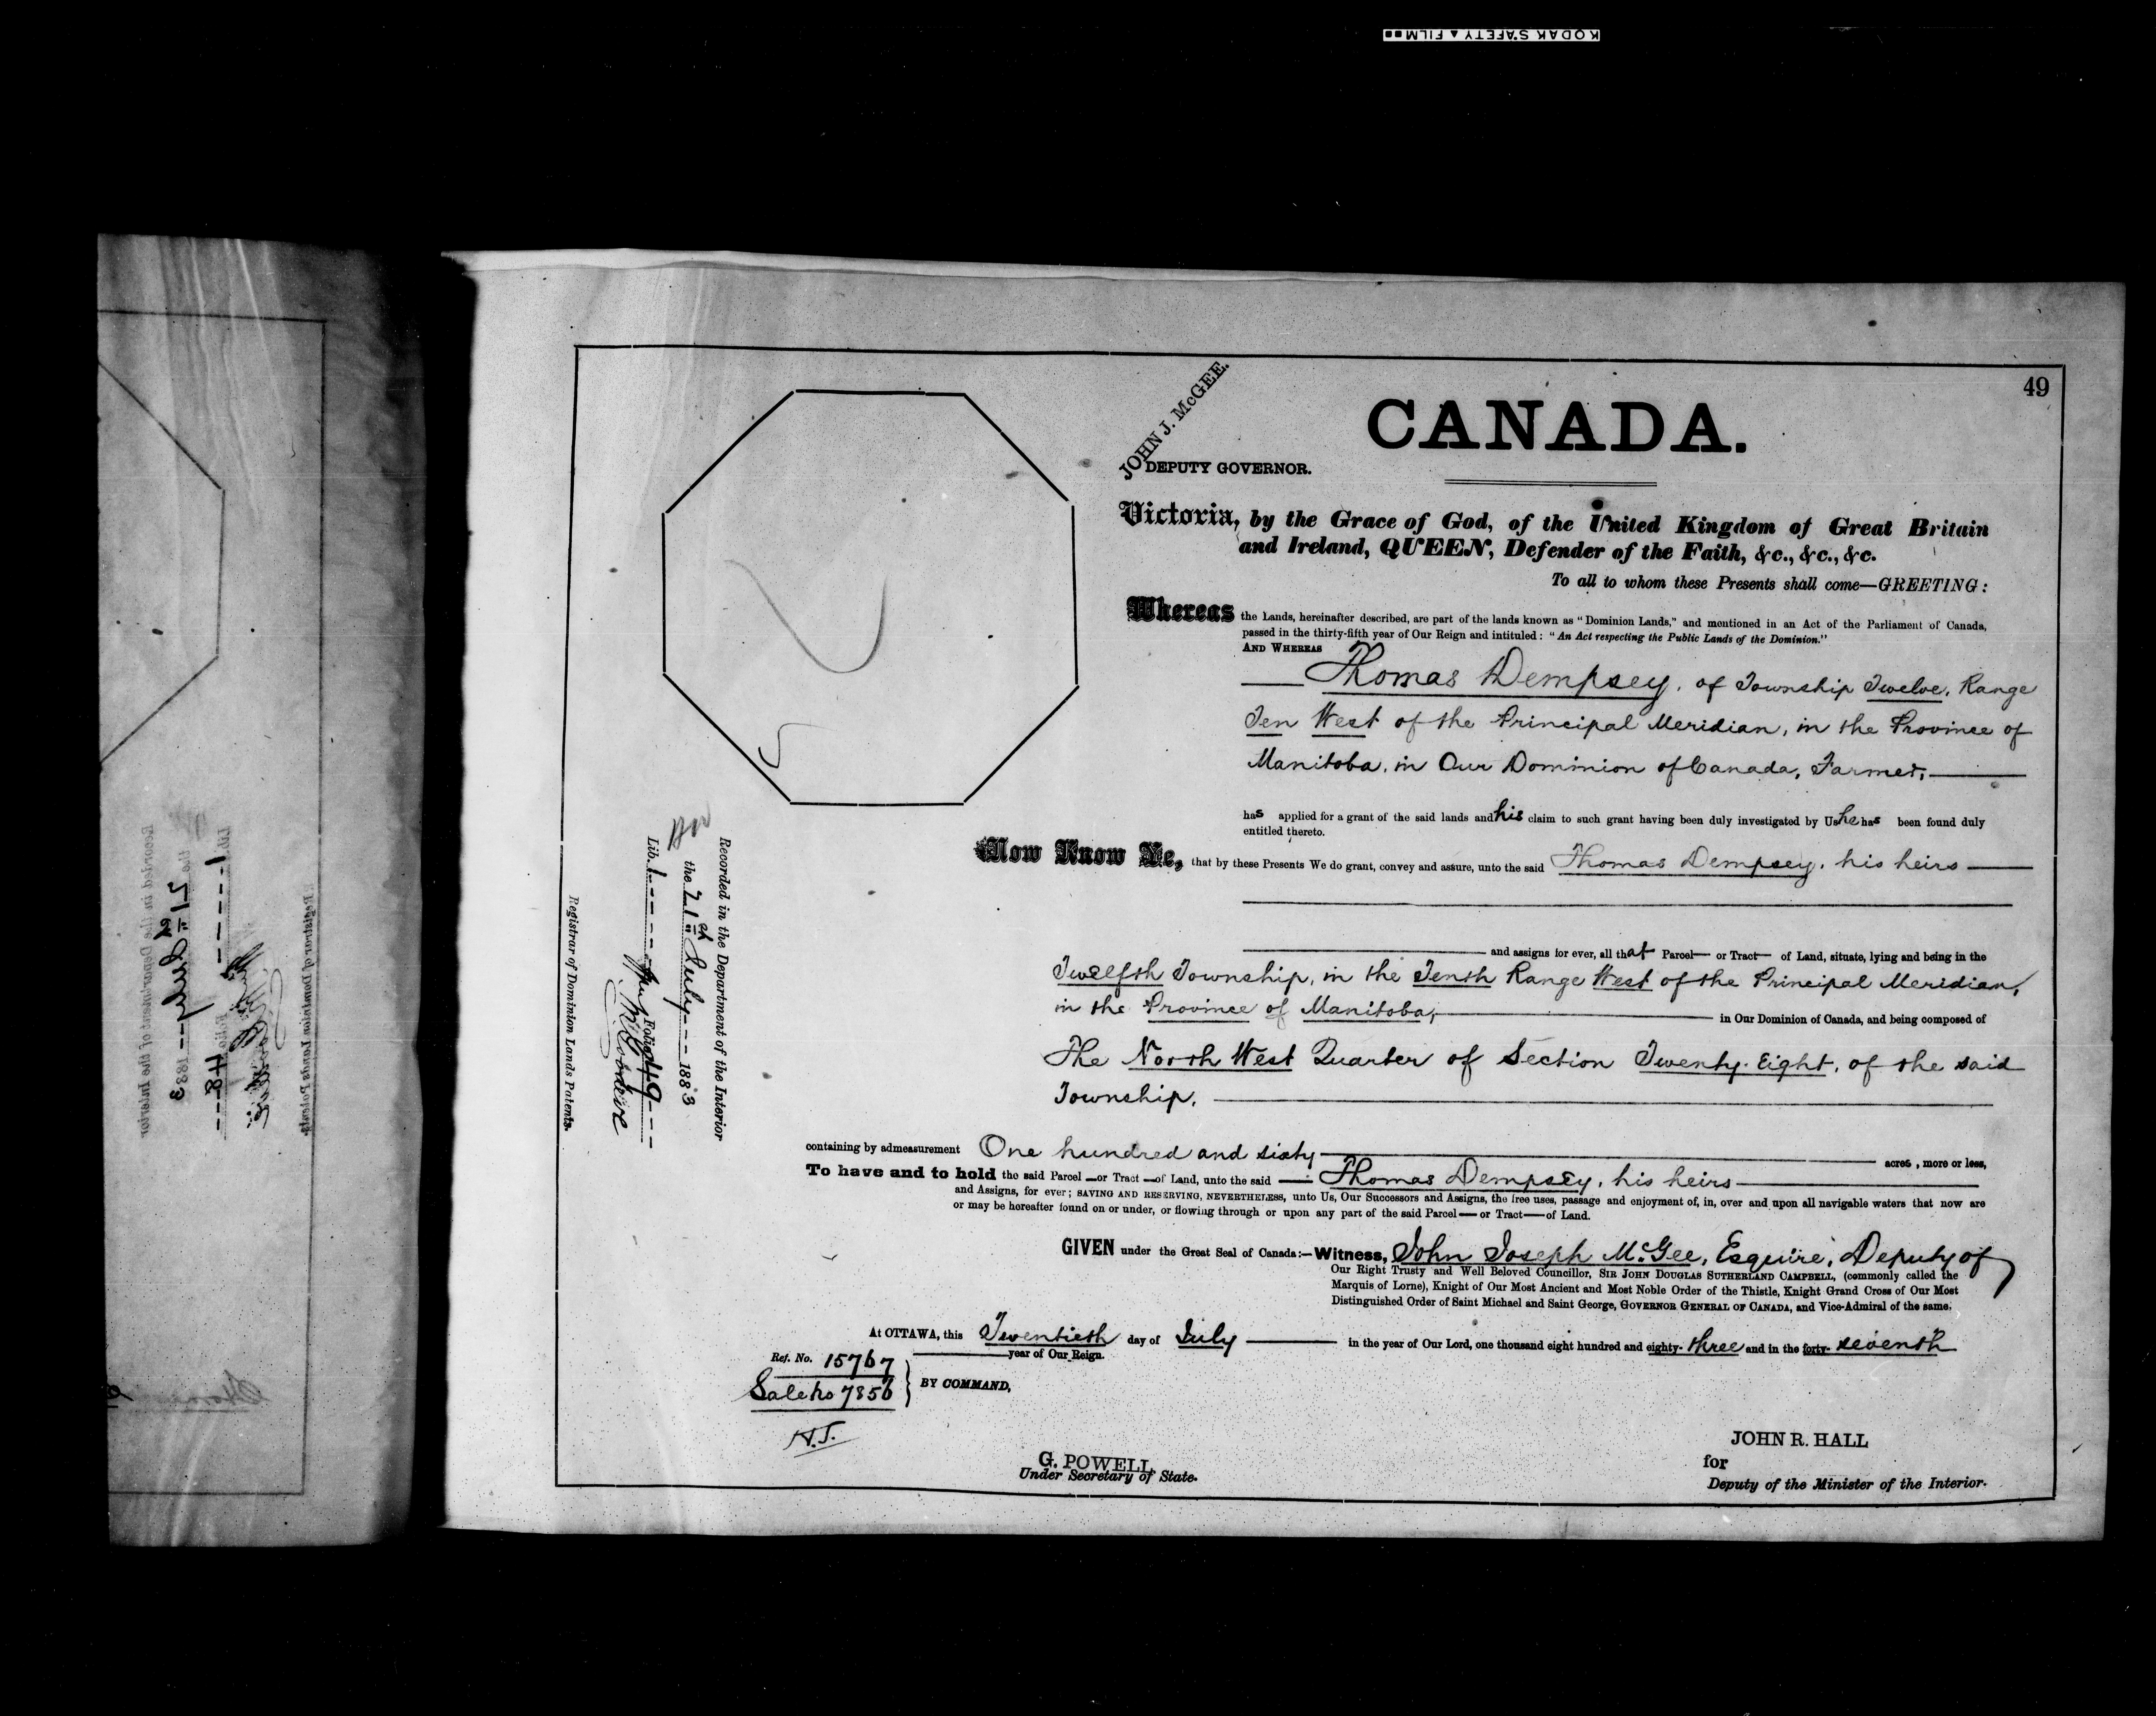 KODAK SAFETY ▲ FILM
49
JOHN J. McGEE.
DEPUTY GOVERNOR.
CANADA.
Victoria, by the Grace of God, of the United Kingdom of Great Britain
and Ireland, QUEEN, Defender of the Faith, &c., &c., &c.
To all to whom these Presents shall come—GREETING:
Whereas the Lands, hereinafter described, are part of the lands known as "Dominion Lands," and mentioned in an Act of the Parliament of Canada,
passed in the thirty-fifth year of Our Reign and intituled: "An Act respecting the Public Lands of the Dominion."
AND WHEREAS
Thomas Dempsey, of Township Twelve, Range
Ten West of the Principal Meridian, in the Province of
Manitoba, in Our Dominion of Canada, Farmer,
has applied for a grant of the said lands and his claim to such grant having been duly investigated by Us he has been found duly
entitled thereto.
Now Know Ye, that by these Presents We do grant, convey and assure, unto the said Thomas Dempsey, his heirs
and assigns for ever, all that Parcel or Tract of Land, situate, lying and being in the
Twelfth Township, in the Tenth Range West of the Principal Meridian,
in the Province of Manitoba, in Our Dominion of Canada, and being composed of
The North West Quarter of Section Twenty-Eight, of the said
Township.
containing by admeasurement One hundred and sixty acres, more or less,
To have and to hold the said Parcel or Tract of Land, unto the said Thomas Dempsey, his heirs
and Assigns, for ever; SAVING AND RESERVING, NEVERTHELESS, unto Us, Our Successors and Assigns, the free uses, passage and enjoyment of, in, over and upon all navigable waters that now are
or may be hereafter found on or under, or flowing through or upon any part of the said Parcel or Tract of Land.
GIVEN under the Great Seal of Canada:—Witness, John Joseph McGee, Esquire, Deputy of
Our Right Trusty and Well Beloved Councillor, SIR JOHN DOUGLAS SUTHERLAND CAMPBELL, (commonly called the
Marquis of Lorne), Knight of Our Most Ancient and Most Noble Order of the Thistle, Knight Grand Cross of Our Most
Distinguished Order of Saint Michael and Saint George, GOVERNOR GENERAL OF CANADA, and Vice-Admiral of the same.
At OTTAWA, this Twentieth day of July in the year of Our Lord, one thousand eight hundred and eighty-three and in the forty-seventh
year of Our Reign.
Ref. No. 15767
Sale No 7856
BY COMMAND,
H.J.
G. POWELL
Under Secretary of State.
JOHN R. HALL
for
Deputy of the Minister of the Interior.
Recorded in the Department of the Interior
the 21st July 1883
Lib. 1 Folio 49
Registrar of Dominion Lands Patents.